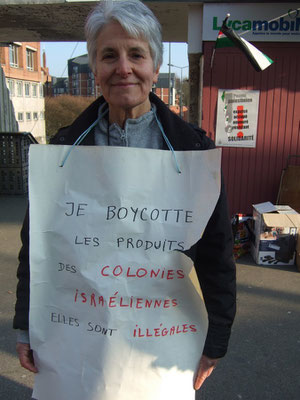 Lycamobile
JE BOYCOTTE
LES PRODUITS
DES COLONIES
ISRAÉLIENNES
ELLES SONT ILLÉGALES
SOLIDARITÉ